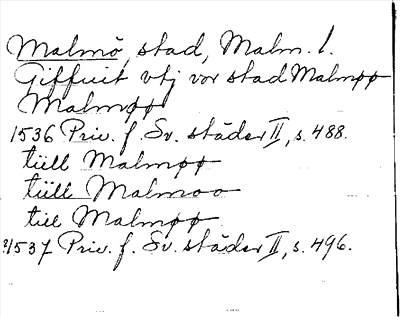 Malmö, stad, Malm. l.
Giffuit vtj vor stad Malmøø
Malmøø
1536 Priv. f. Sv. städer II, s. 488.
tiill Malmøø
tiill Malmoo
till Malmøø
1537 Priv. f. Sv. städer II, s. 496.